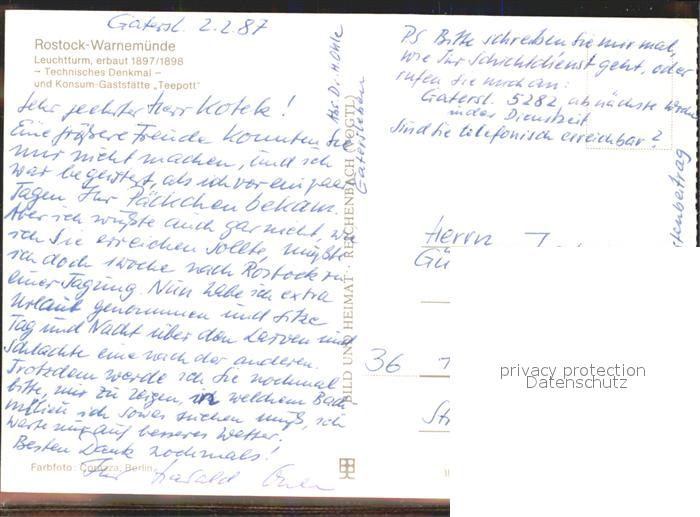 Gatersl. 2.2.87
Rostock-Warnemünde
Leuchtturm, erbaut 1897/1898
– Technisches Denkmal –
und Konsum-Gaststätte „Teepott"
Sehr geehrter Herr Kotek!
Eine größere Freude konnten Sie
mir nicht machen, und ich
war begeistert, als ich vor ein paar
Tagen Ihr Päckchen bekam.
Aber ich wußte auch gar nicht, wo
ich Sie erreichen sollte, mußte
ich doch 1 Woche nach Rostock zu
einer Tagung. Nun habe ich extra
Urlaub genommen und sitze
Tag und Nacht über den Larven und
schlachte eine nach der anderen.
Trotzdem werde ich Sie nochmal
bitte, mir zu zeigen, in welchem Bach
ich sowas suchen muß, ich
warte nur auf besseres Wetter.
Besten Dank nochmals!
Ihr Harald
Farbfoto: Corazza, Berlin
Abs. Dr.
Gatersleben
BILD UND HEIMAT · REICHENBACH (VOGTL)
PS Bitte schreiben Sie mir mal,
wie Ihr Schichtdienst geht, oder
rufen Sie mich an:
Gatersl. 5282, ab nächste Woche
in der Dienstzeit
Sind Sie telefonisch erreichbar?
Herrn
Gü
36
St
privacy protection
Datenschutz